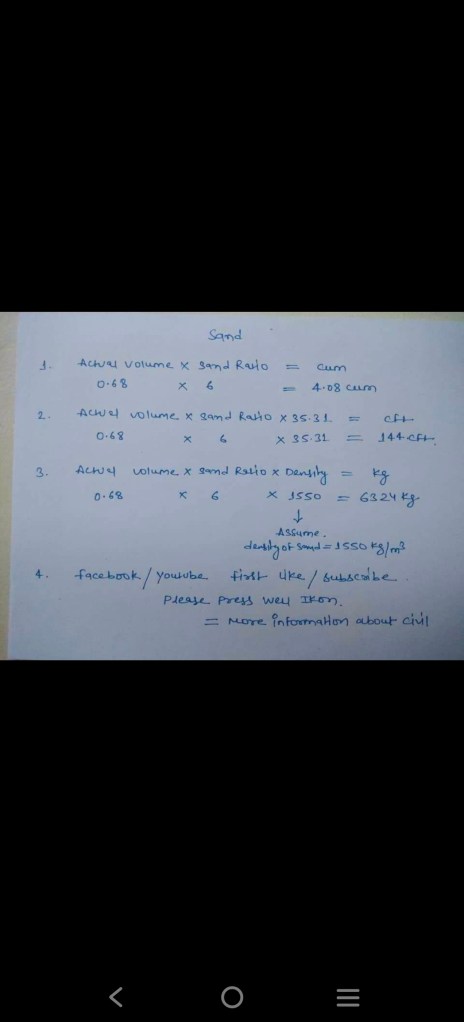 Sand
1. Actual volume x sand Ratio = cum
0.68 x 6 = 4.08 cum
2. Actual volume x sand Ratio x 35.31 = cft
0.68 x 6 x 35.31 = 144 cft.
3. Actual volume x sand Ratio x Density = kg
0.68 x 6 x 1550 = 6324 kg
↓
Assume.
density of sand = 1550 kg/m³
4. facebook/youtube first like/subscribe.
Please press well Ikon.
= More information about civil